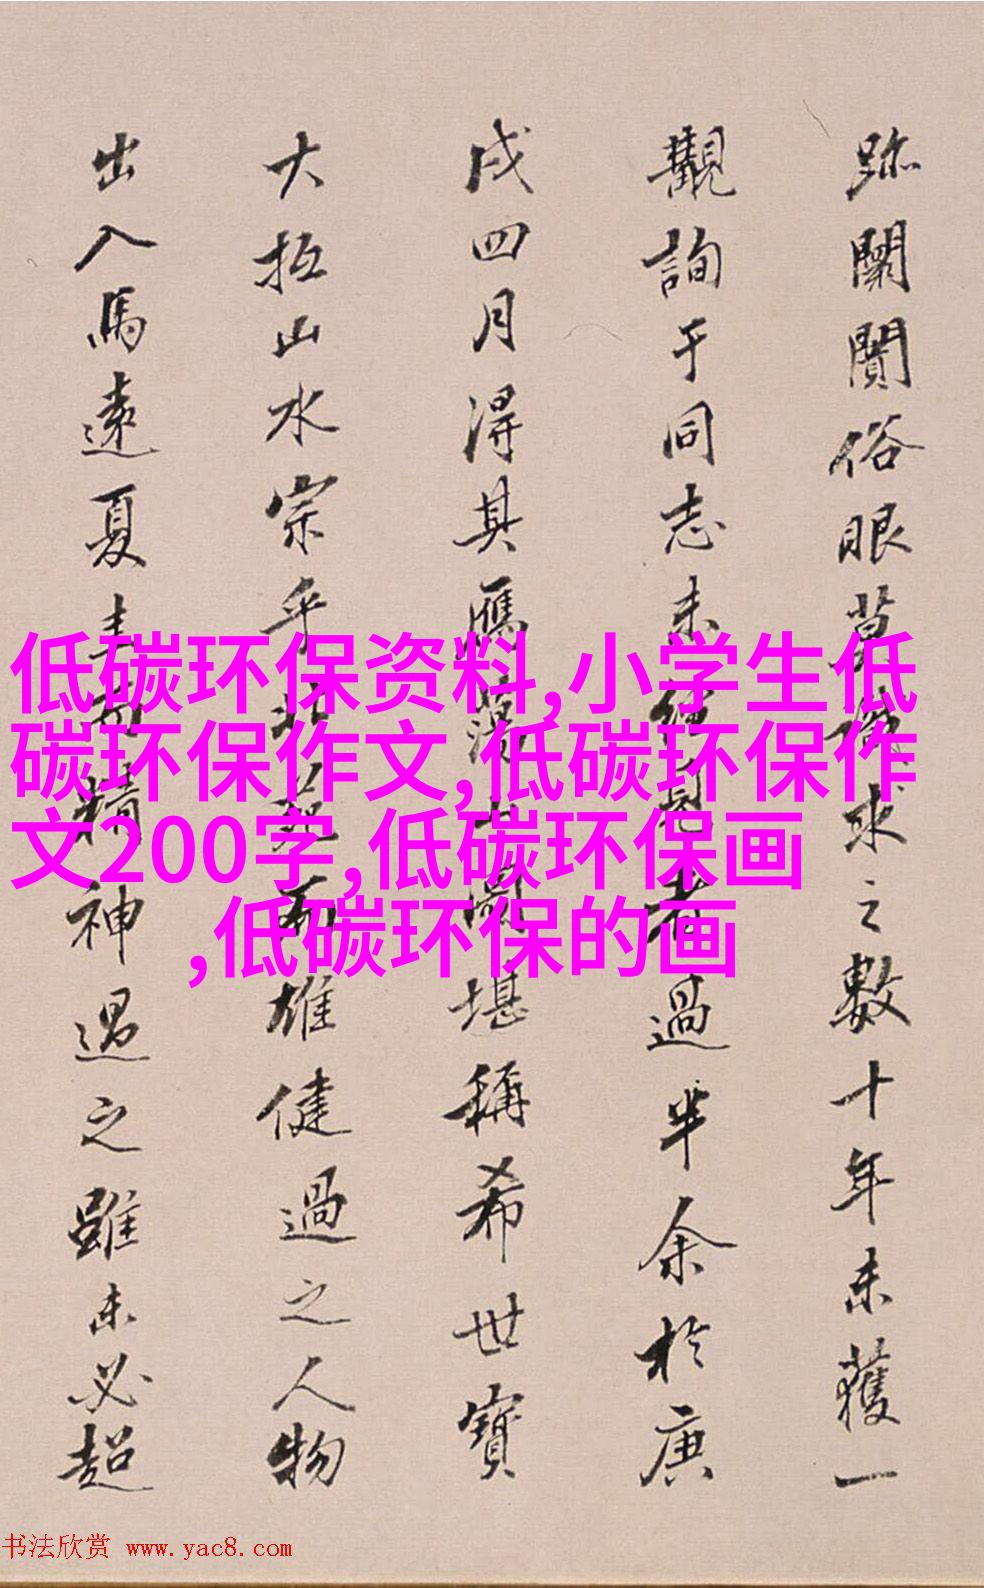 跡闤闠俗眼莫識求之數十年未獲一
觀詢于同志未經見者過半余於庚
戌四月得其鴈蕩山圖堪稱希世寶
大抵山水宗乎北苑而雄健過之人物
出入馬遠夏圭而精神過之雖未必超
低碳环保资料,小学生低
碳环保作文,低碳环保作
文200字,低碳环保画
,低碳环保的画
书法欣赏 www.yac8.com